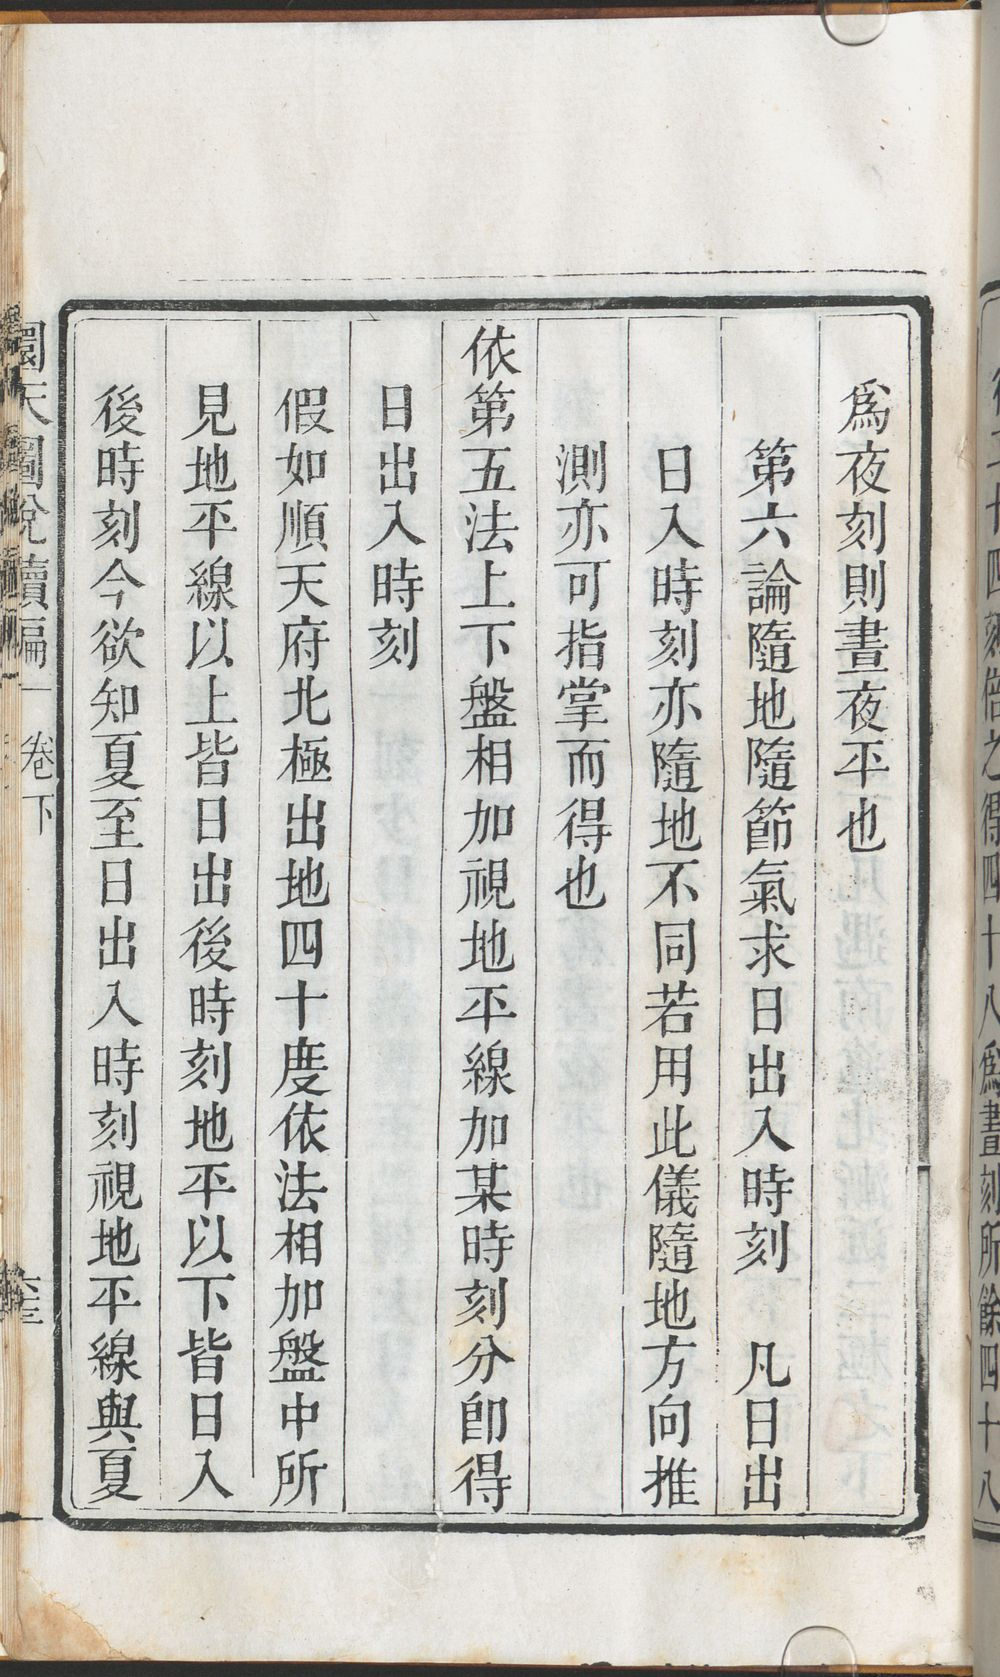 爲夜刻則晝夜平也
第六論隨地隨節氣求日出入時刻　凡日出
日入時刻亦隨地不同若用此儀隨地方向推
測亦可指掌而得也
依第五法上下盤相加視地平線加某時刻分卽得
日出入時刻
假如順天府北極出地四十度依法相加盤中所
見地平線以上皆日出後時刻地平以下皆日入
後時刻今欲知夏至日出入時刻視地平線與夏
圜天圖說續編　卷下
二十四刻倍之得四十八爲晝刻所餘四十八